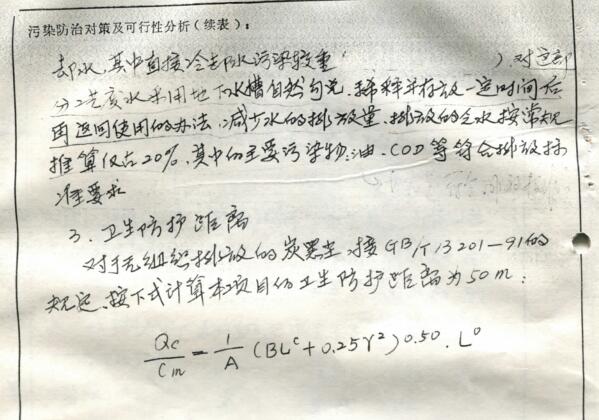 污染防治对策及可行性分析(续表):
却水,其中直接冷却水污染较重( )对这部
分工艺废水采用地下水槽自然匀完、稀释并存放一定时间后
再返回使用的办法,减少水的排放量,排放的污水按常规
推算仅占20%,其中的主要污染物:油、COD等符合排放标
准要求
3、卫生防护距离
对于无组织排放的炭黑尘,按GB/T13201-91的
规定、按下式计算本项目的卫生防护距离为50m:
Qc/Cm = 1/A (BL^c+0.25r^2)0.50.L^D